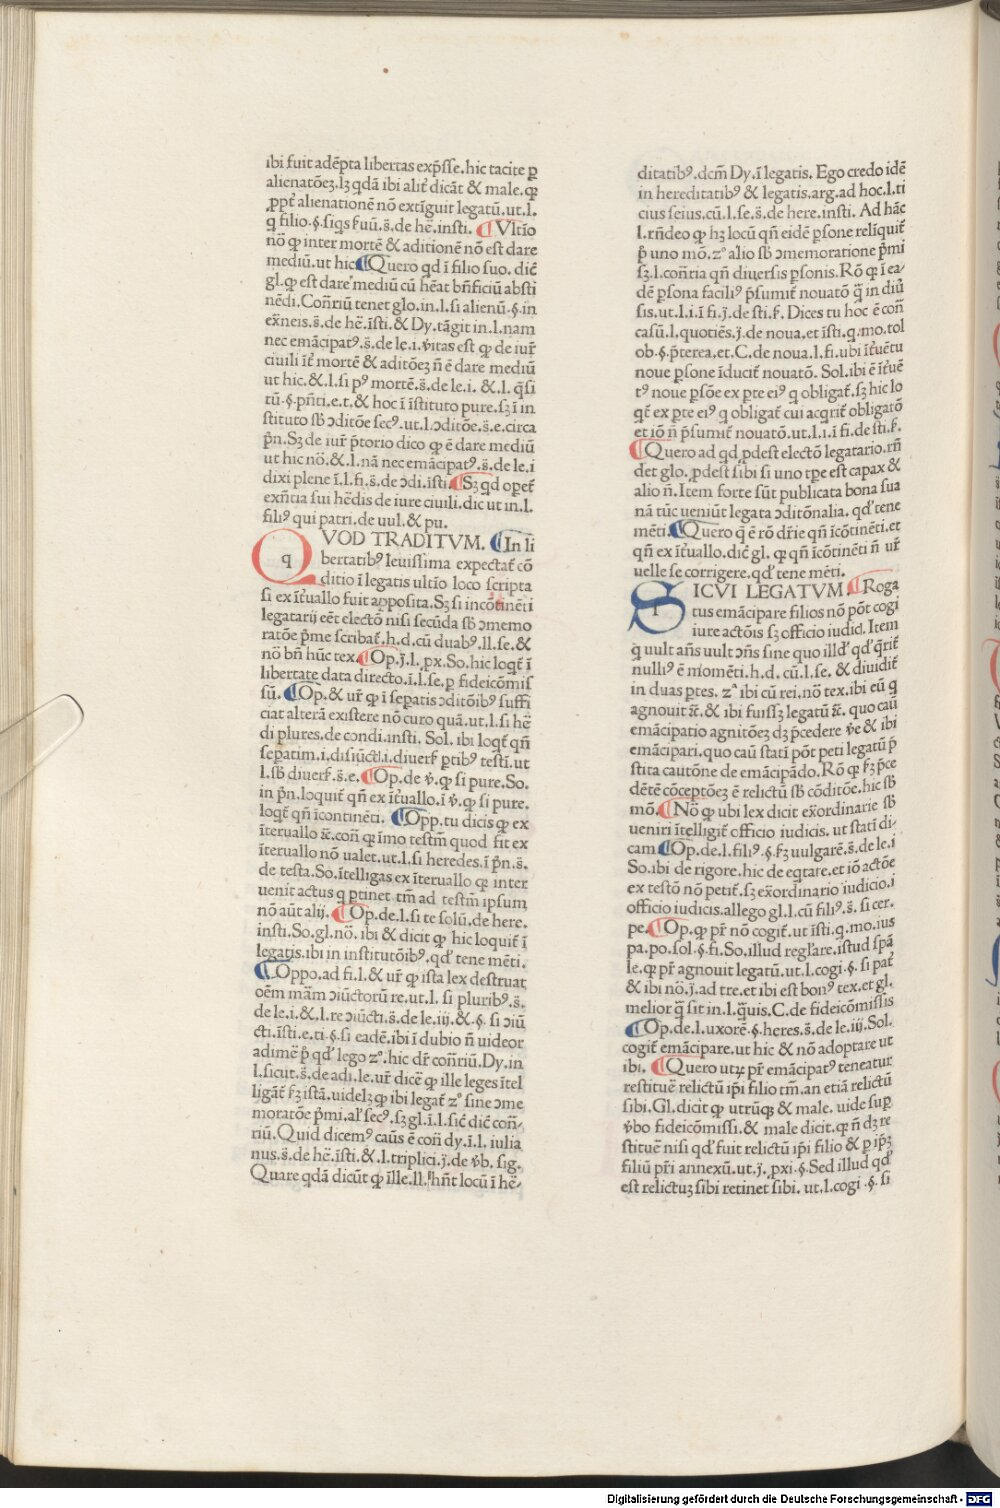 ibi fuit adēpta libertas exp̄sse.hic tacite ꝑ
alienatōeꝫ.lꝫ qdā ibi alit̄ dicāt & male.qꝫ
ꝓpt̄ alienationē nō extīguit legatū.ut.l.
q filio.§.siqs fuū.s̄.de hē.insti. ¶Vltīo
nō ꝙ inter mortē & aditionē nō est dare
mediū.ut hic ¶Quero qd ī filio suo. dic̄
gl.ꝙ est dare mediū cū hēat bn̄ficiū absti
nēdi. Con̄riū tenet glo.in.l.si alienū.§.in
ex̄neis.s̄.de hē.īsti.& Dy.tāgit in.l.nam
nec emācipatꝰ.s̄.de le.i.v̄itas est ꝙ de iur̄
ciuili īt̄ mortē & aditōeꝫ n̄ ē dare mediū
ut hic.&.l.si pꝰ mortē.s̄.de le.i. &.l. q̄si
tū.§.pn̄ti.e.t.& hoc ī īstituto pure.sꝫ ī in
stituto sb̄ ɔditōe secꝰ.ut.l.ɔditōe.s̄.e.circa
pn̄. Sꝫ de iur̄ p̄torio dico ꝙ ē dare mediū
ut hic nō.&.l.nā nec emācipatꝰ.s̄.de le.i
dixi plene ī.l.fi.s̄.de ɔdi.īsti.¶Sꝫ qd opet̄
exn̄tia sui hēdis de iure ciuili.dic ut in.l.
filiꝰ qui patri.de uul.& pu.
QVOD TRADITVM. ¶In li
bertatibꝰ leuissima expectat̄ cō
ditio ī legatis ultīo loco scripta
si ex īt̄uallo fuit apposita.Sꝫ si incōtinēti
legatarij eēt electō nisi secūda sb̄ ɔmemo
ratōe p̄me scribat̄.h.d.cū duabꝰ.ll.se.&
nō bn̄ hūc tex.¶Op.j.l.ꝓx.So.hic loqt̄ ī
libertate data directo.ī.l.se.ꝑ fideicōmis
sū.¶Op.& ur̄ ꝙ ī seꝑatis ɔditōibꝰ suffi
ciat alterā existere nō curo quā.ut.l.si hē
di plures.de condi.insti. Sol. ibi loqt̄ qn̄
seꝑatim.i.disiūcti.i.diuers̄ ꝑtibꝰ testi.ut
l.sb̄ diuers̄.s̄.e.¶Op.de v̄.ꝙ si pure.So.
in pn̄.loquit̄ qn̄ ex īt̄uallo.ī v̄.ꝙ si pure.
loqt̄ qn̄ īcontinēti. ¶Opp.tu dicis ꝙ ex
īteruallo ⁊c̄.con̄ ꝙ īmo testm̄ quod fit ex
īteruallo nō ualet.ut.l.si heredes.ī pn̄.s̄.
de testa.So.ītelligas ex īteruallo ꝙ inter
uenit actus q ptinet tm̄ ad testm̄ ipsum
nō aūt alij. ¶Op.de.l.si te solū.de here.
insti.So.gl.nō. ibi & dicit ꝙ hic loquit̄ ī
legatis.ibi in institutōibꝰ.qd' tene mēti.
¶Oppo.ad fi.l.& ur̄ ꝙ ista lex destruat
oēm mām ɔiūctorū re.ut.l. si pluribꝰ.s̄.
de le.i.&.l.re ɔiūcti.s̄.de le.iij.&.§. si ɔiū
cti.īsti.e.ti.§.si eadē.ibi ī dubio n̄ uideor
adimē p̄ qd' lego zº.hic dr̄ con̄riū.Dy.in
l.sicut.s̄.de adi.le.ur̄ dicē ꝙ ille leges ītel
ligāt̄ ẜꝫ istā.uidelꝫ ꝙ ibi legat̄ zº sine ɔme
moratōe p̄mi.al' secꝰ.sꝫ gl.ī.l.sic̄ dic̄ con̄
riū.Quid dicemꝰ caūs ē con̄ dy.ī.l. iulia
nus.s̄.de hē.īsti.&.l.triplici.j.de v̄b. sig.
Quare qdā dicūt ꝙ īlle.ll.hn̄t locū ī hē
ditatibꝰ.dcm̄ Dy.ī legatis. Ego credo idē
in hereditatibꝰ & legatis.arg.ad hoc.l.ti
cius seius.cū.l.se.s̄.de here.insti. Ad hāc
l.rn̄deo ꝙ hꝫ locū qn̄ eidē ꝑsone relīquit̄
p̄ uno mō.zº alio sb̄ ɔmemoratione p̄mi
sꝫ.l.con̄tia qn̄ diuersis ꝑsonis. Rō ꝙ ī ea
dē ꝑsona faciliꝰ p̄sumit̄ nouatō q̄ in diu̇
sis.ut.l.i.ī fi.j.de sti.ẜ. Dices tu hoc ē con̄
casū.l.quotiēs.j.de noua.et.īsti.q.mo.tol
ob.§.p̄terea.et.C.de noua.l.fi.ubi īt̄uētu
noue ꝑsone īducit̄ nouatō. Sol.ibi ē īt̄uē
tꝰ noue ꝑsōe ex ꝑte eiꝰ q obligat̄.sꝫ hic lo
qt̄ ex ꝑte eiꝰ q obligat̄ cui acqrit̄ obligatō
et iō n̄ p̄sumit̄ nouatō.ut.l.i.ī fi.de sti.ẜ.
¶Quero ad qd ꝓdest electō legatario.rn̄
det glo.ꝓdest sibi si uno tꝑe est capax &
alio n̄. Item forte sūt publicata bona sua
nā tūc ueniūt legata ɔditōnalia. qd' tene
mēti.¶Quero q̄ ē rō dr̄ie qn̄ īcōtinēti.et
qn̄ ex īt̄uallo.dic̄ gl. ꝙ qn̄ īcōtinēti n̄ ur̄
uelle se corrigere.qd' tene mēti.
SICVI LEGATVM.¶Roga
tus emācipare filios nō pōt cogi
iure actōis sꝫ officio iudic̄. Item
q uult an̄s uult ɔn̄s sine quo illd' qd' q̄rit̄
nulliꝰ ē momēti.h.d. cū.l.se.& diuidit̄
in duas ꝑtes. zª ibi cū rei.nō tex.ibi eū q
agnouit ⁊c̄.& ibi fuissꝫ legatū ⁊c̄. quo caū
emācipatio agnitōeꝫ dꝫ p̄cedere v̄e & ibi
emācipari.quo caū statī pōt peti legatū p̄
stita cautōne de emācipādo. Rō ꝙ ẜꝫ p̄ce
dētē cōceptōeꝫ ē relictū sb̄ cōditōe.hic sb̄
mō.¶Nō ꝙ ubi lex dicit ex̄ordinarie sb̄
ueniri ītelligit̄ officio iudicis.ut statī di
cam ¶Op.de.l.filiꝰ.§.ẜꝫ uulgarē.s̄.de le.i
So.ibi de rigore.hic de eqtare.et iō actōe
ex testō nō petit̄.sꝫ ex̄ordinario iudicio.i
officio iudicis.allego gl.l.cū filiꝰ.s̄. si cer.
pe.¶Op.ꝙ pr̄ nō cogit̄.ut īsti.q.mo.ius
pa.po.sol.§.fi.So.illud regl'are.istud spā
le.ꝙ pr̄ agnouit legatū.ut.l.cogi.§.si pat̄
& ibi nō.j.ad tre.et ibi est bonꝰ tex.et gl.
melior q̄ sit in.l.q̄uis.C.de fideicōmissis
¶Op.de.l.uxorē.§.heres.s̄.de le.iij.Sol.
cogit̄ emācipare.ut hic & nō adoptare ut
ibi. ¶Quero utꝝ pr̄ emācipatꝰ teneatur
restituē relictū ip̄i filio tm̄.an etiā relictū
sibi. Gl. dicit ꝙ utrūqꝫ & male. uide suꝑ
v̄bo fideicōmissi.& male dicit.ꝙ n̄ dꝫ re
stituē nisi qd' fuit relictū ip̄i filio & ꝑ ip̄ꝫ
filiū pr̄i annexū.ut.j. ꝓxi.§.Sed illud qd'
est relictuꝫ sibi retinet sibi. ut.l.cogi.§. si
Digitalisierung gefördert durch die Deutsche Forschungsgemeinschaft - DFG